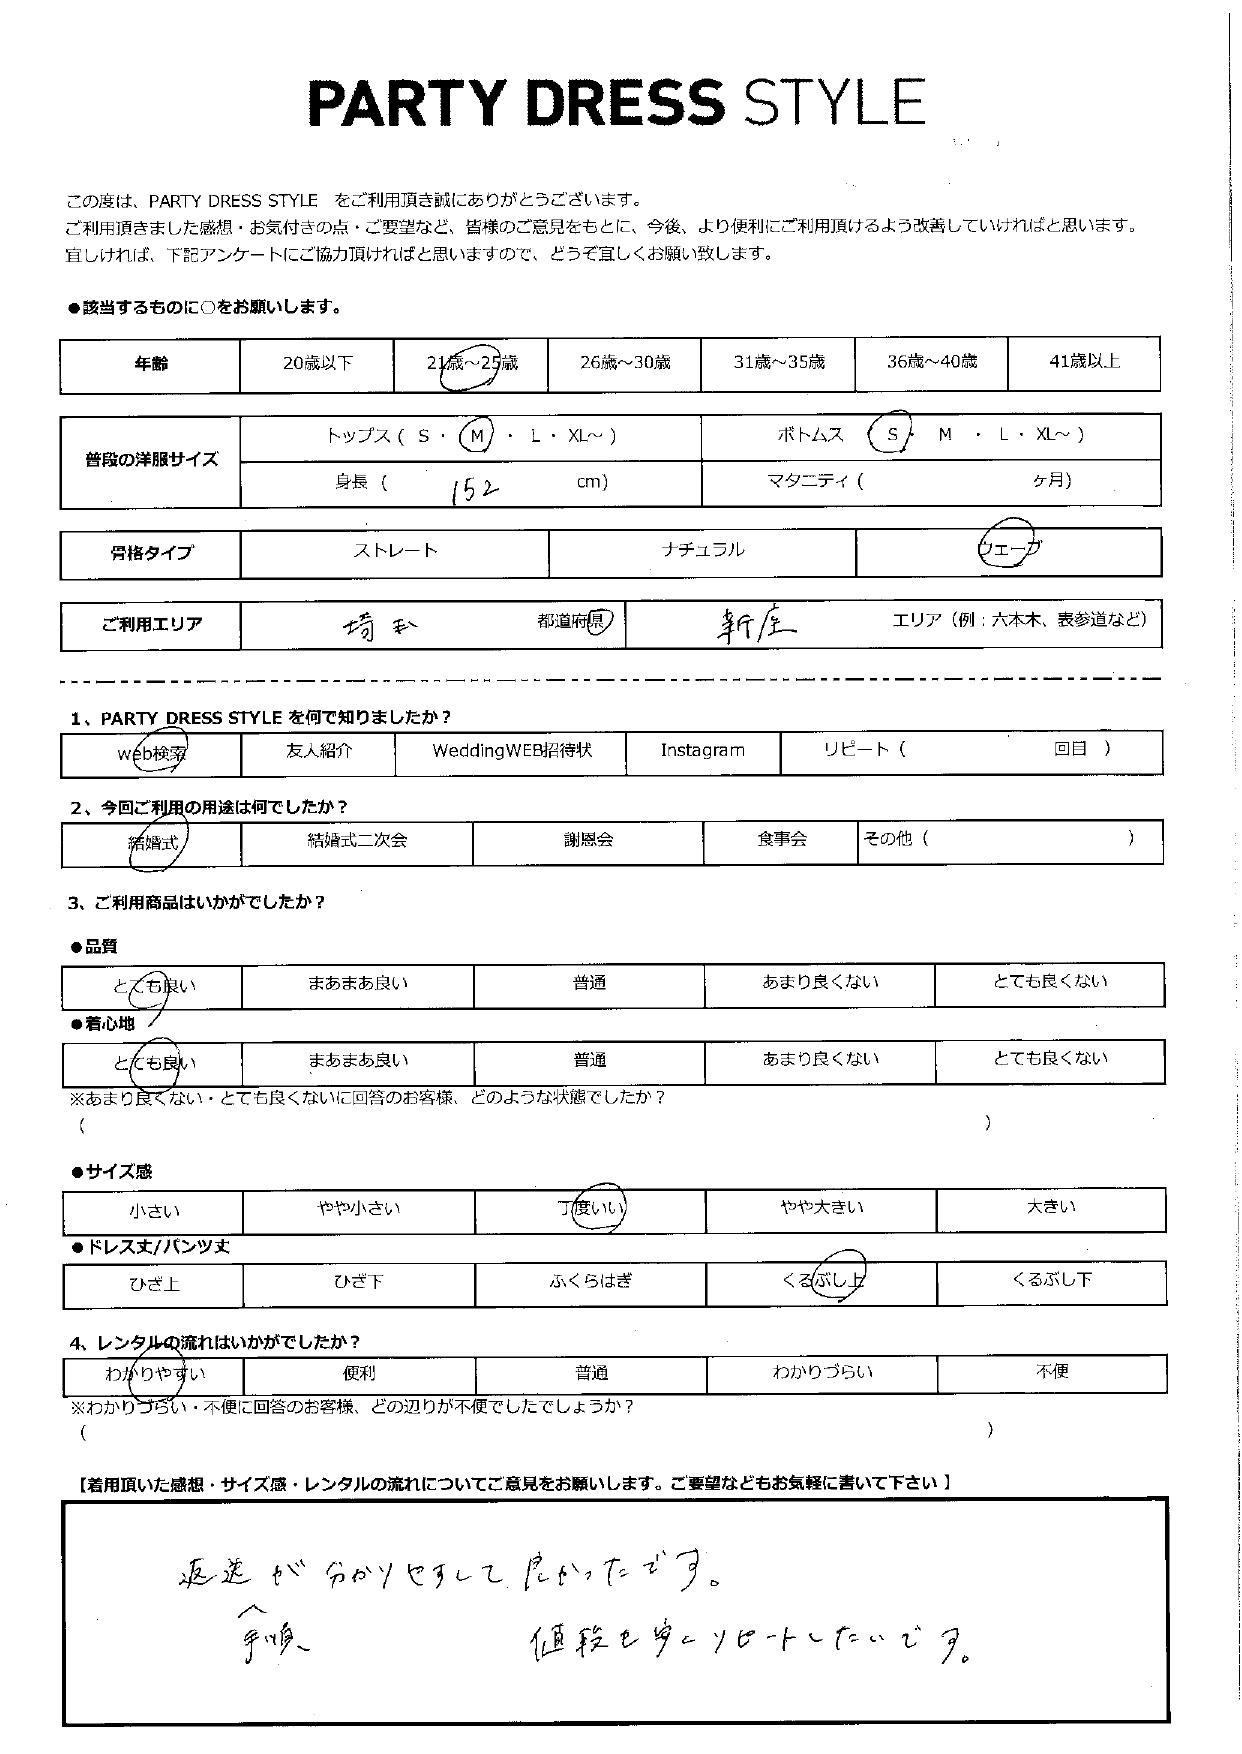 PARTY DRESS STYLE
この度は、PARTY DRESS STYLE をご利用頂き誠にありがとうございます。
ご利用頂きました感想・お気付きの点・ご要望など、皆様のご意見をもとに、今後、より便利にご利用頂けるよう改善していければと思います。
宜しければ、下記アンケートにご協力頂ければと思いますので、どうぞ宜しくお願い致します。
●該当するものに○をお願いします。
年齢 20歳以下 21歳～25歳 26歳～30歳 31歳～35歳 36歳～40歳 41歳以上
普段の洋服サイズ トップス ( S ・ M ・ L ・ XL～ ) ボトムス ( S ・ M ・ L ・ XL～ )
身長 ( 152 cm) マタニティ ( ヶ月)
骨格タイプ ストレート ナチュラル ウェーブ
ご利用エリア 埼玉 都道府県 新座 エリア（例：六本木、表参道など）
1、PARTY DRESS STYLE を何で知りましたか？
web検索 友人紹介 WeddingWEB招待状 Instagram リピート ( 回目 )
2、今回ご利用の用途は何でしたか？
結婚式 結婚式二次会 謝恩会 食事会 その他 ( )
3、ご利用商品はいかがでしたか？
●品質
とても良い まあまあ良い 普通 あまり良くない とても良くない
●着心地
とても良い まあまあ良い 普通 あまり良くない とても良くない
※あまり良くない・とても良くないに回答のお客様、どのような状態でしたか？
( )
●サイズ感
小さい やや小さい 丁度いい やや大きい 大きい
●ドレス丈/パンツ丈
ひざ上 ひざ下 ふくらはぎ くるぶし上 くるぶし下
4、レンタルの流れはいかがでしたか？
わかりやすい 便利 普通 わかりづらい 不便
※わかりづらい・不便に回答のお客様、どの辺りが不便でしたでしょうか？
( )
【着用頂いた感想・サイズ感・レンタルの流れについてご意見をお願いします。ご要望などもお気軽に書いて下さい 】
返送が分かりやすくて良かったです。
手順 値段も安くリピートしたいです。